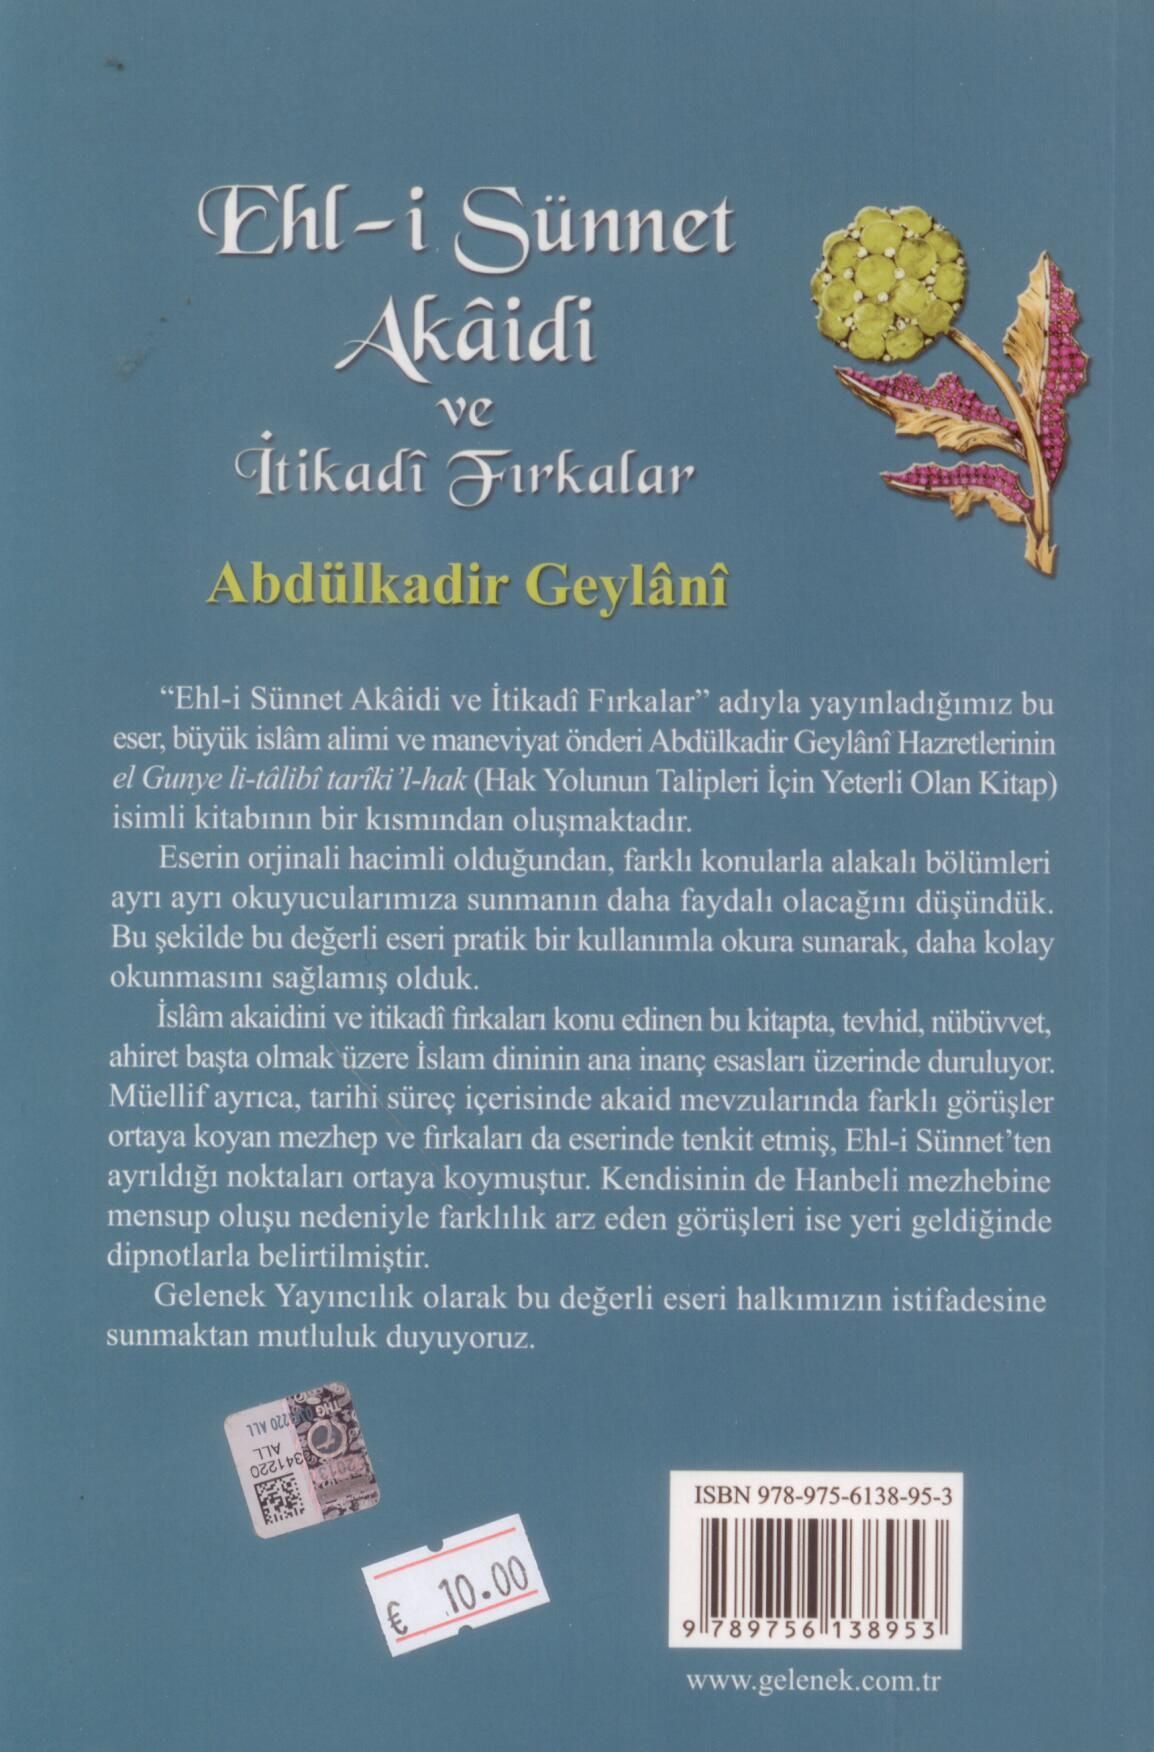 Ehl-i Sünnet
Akâidi
ve
İtikadî Fırkalar
Abdülkadir Geylânî
“Ehl-i Sünnet Akâidi ve İtikadî Fırkalar” adıyla yayınladığımız bu
eser, büyük islâm alimi ve maneviyat önderi Abdülkadir Geylânî Hazretlerinin
el Gunye li-tâlibî tarîki’l-hak (Hak Yolunun Talipleri İçin Yeterli Olan Kitap)
isimli kitabının bir kısmından oluşmaktadır.
Eserin orjinali hacimli olduğundan, farklı konularla alakalı bölümleri
ayrı ayrı okuyucularımıza sunmanın daha faydalı olacağını düşündük.
Bu şekilde bu değerli eseri pratik bir kullanımla okura sunarak, daha kolay
okunmasını sağlamış olduk.
İslâm akaidini ve itikadî fırkaları konu edinen bu kitapta, tevhid, nübüvvet,
ahiret başta olmak üzere İslam dininin ana inanç esasları üzerinde duruluyor.
Müellif ayrıca, tarihi süreç içerisinde akaid mevzularında farklı görüşler
ortaya koyan mezhep ve fırkaları da eserinde tenkit etmiş, Ehl-i Sünnet’ten
ayrıldığı noktaları ortaya koymuştur. Kendisinin de Hanbeli mezhebine
mensup oluşu nedeniyle farklılık arz eden görüşleri ise yeri geldiğinde
dipnotlarla belirtilmiştir.
Gelenek Yayıncılık olarak bu değerli eseri halkımızın istifadesine
sunmaktan mutluluk duyuyoruz.
ALL
€ 10.00
ISBN 978-975-6138-95-3
9 789756 138953
www.gelenek.com.tr